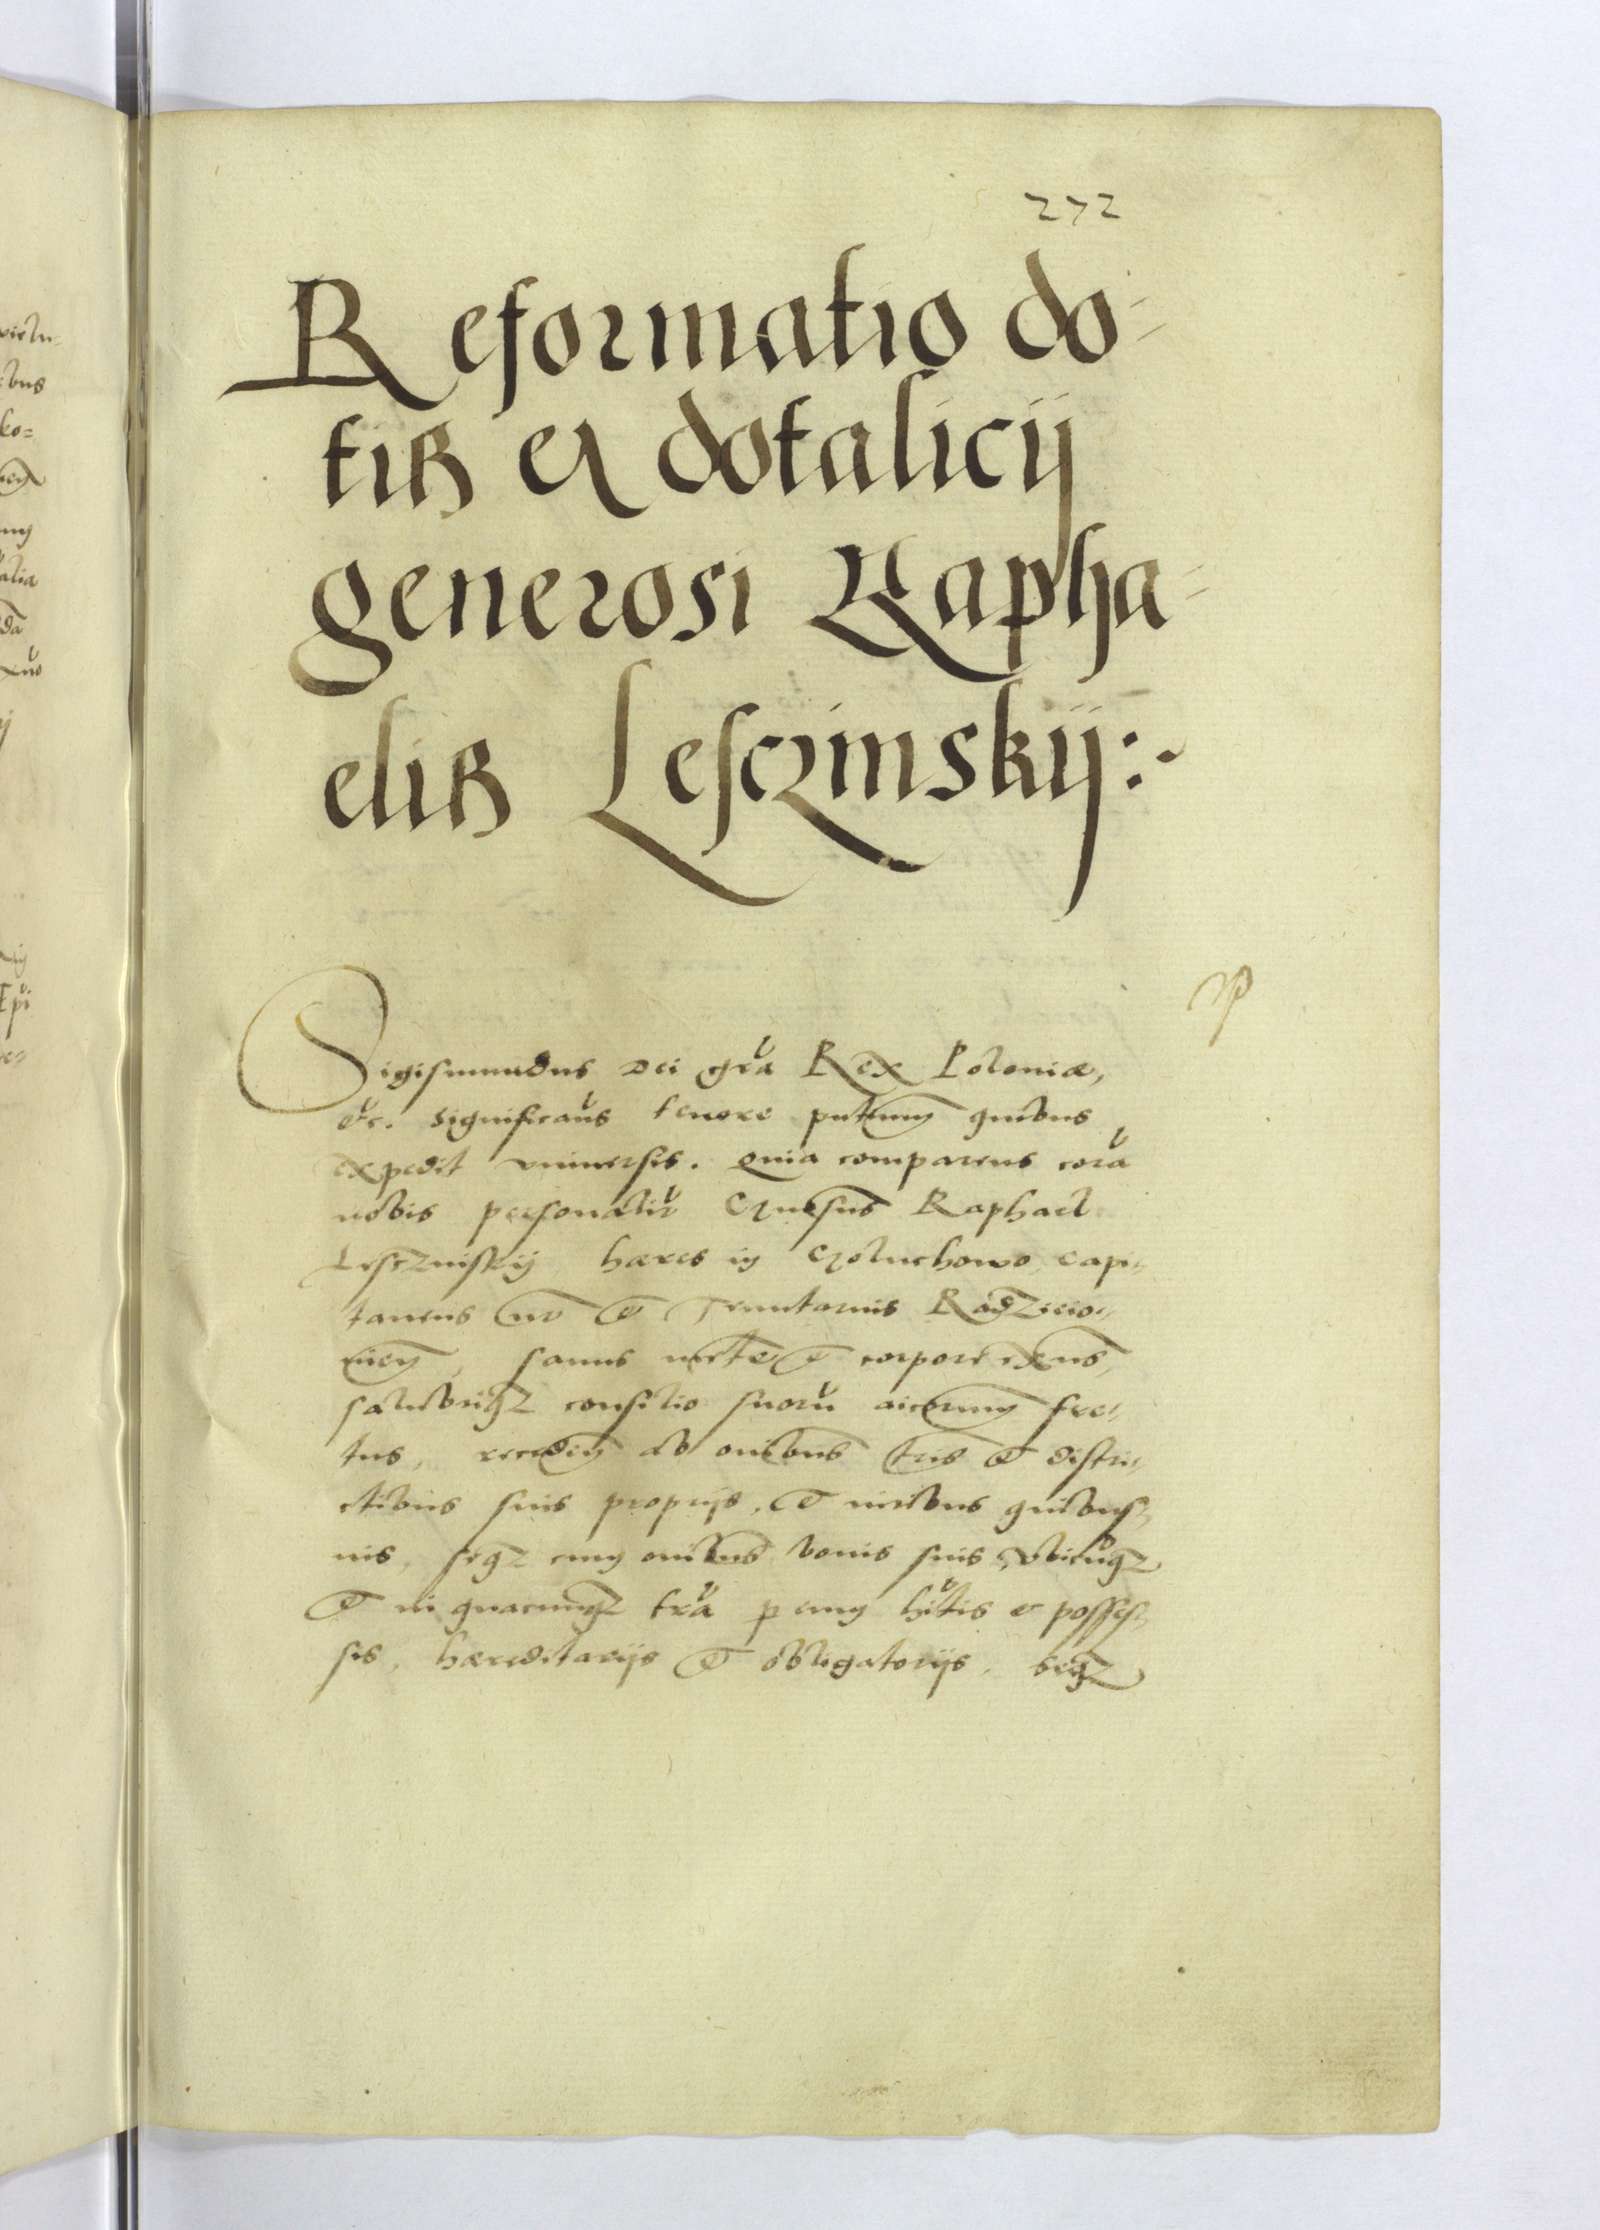 272
Reformatio do-
tis et dotalicij
generosi Rapha-
elis Lesczinskij:~
Sigismundus Dei gra Rex Poloniæ,
etc. Significaus tenore pntium quibus
expedit vniuersis. Quia comparens corã
nobis personalit Gnosus Raphael
Lesczniskij hæres in Goluchowo, Capi-
taneus nr et Tenutarius Radzieio-
uien, sanus mente et corpore exns,
salubriqz consilio suorũ amicorum fre-
tus, recedens ab omibus tris et distri-
ctibus suis proprijs, et iuribus quibus-
uis, seqz cum omibus bonis suis, vbicũqz
et in quacunqz tra p eum hitis et posses-
sis, hæreditarijs et obligatorijs, seqz